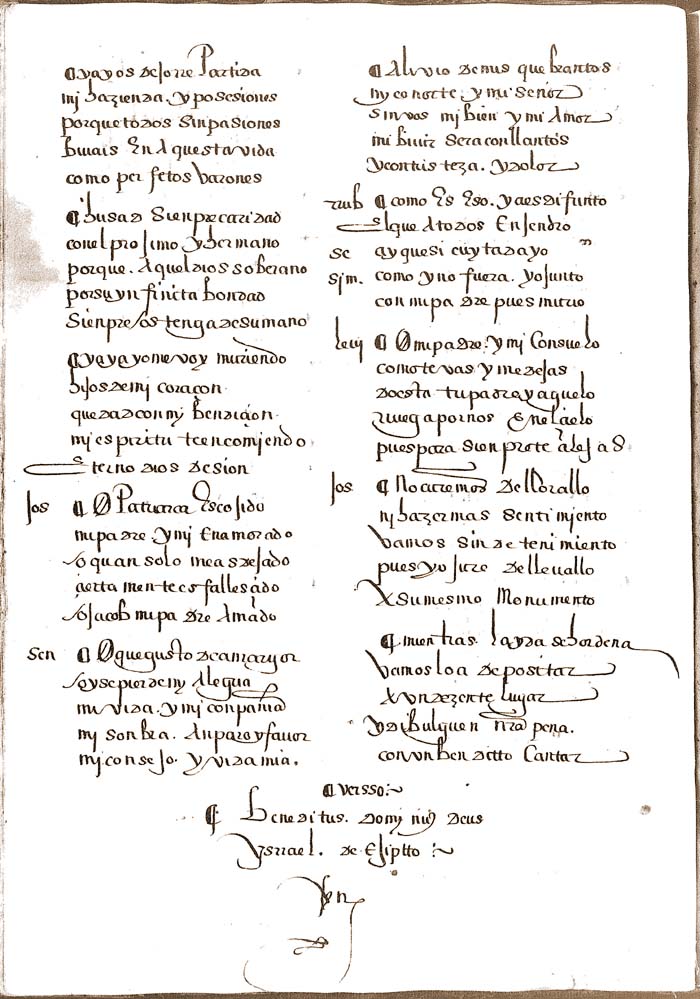 ya yos de jorre Partida
mj hazienda. y posesiones
porque todos sin pasiones
biuais En Aquesta vida
como per fetos Varones
busad Sienpre caridad
con el pro simo y hermano
porque. Aquel dios soberano
por su ynfinita bondad
Sienpre os tenga de su mano
ya ya yo me voy muriendo
hijos de mi coraçon
quedad con mj bendiçion
mj espiritu te encomjendo
Eterno dios de sion
Jos O Patriarca Escojido
mi padre. y mj Enamorado
o quan solo me as dejado
çierta mente es fallesçido
o Jacob mi pa dre Amado
Sen O que gusto de amargor
oy se pierde mj Alegria
mi vida. y mj conpañia
mj sonbra. Anparo y fauor
mj consejo. y vida mia.
Aliuio de mis que brantos
my conorte. y mi señor
sin vos mj bien y mj Amor
mi biuir sera con llantos
y con tris teza. y dolor
rub como Es Eso. ya es difunto
El que A todos Enjendro
se ay que si cuytada yo
sjm. como y no fuera. yo junto
con mi pa dre pues murio
leuj O mi padre. y mj Consuelo
como te vas y me dejas
desta tu patria y aquelo
Ruega por nos En el çielo
pues para sien pre te alejas
Jos No curemos de llorallo
nj hazer mas sentimjento
Vamos sin detenimiento
pues yo juro de lleuallo
A su mesmo Monumento
mientras la yda se hordena
Vamos lo a depositar
A vn dezente lugar
y dibulguen nra pena.
con vn ben detto Cantar
versso:~
beneditus. domj nus deus
ysrrael. de Ejiptto :~